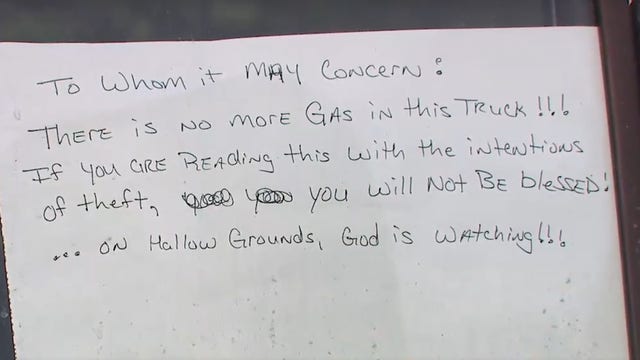 To Whom it MAY Concern:
THERE is NO MORE GAS in this TRUCK!!!
If you ARE Reading this With the intentions
of theft, you will Not Be blessed!
... ON Hallow Grounds, God is WAtching!!!